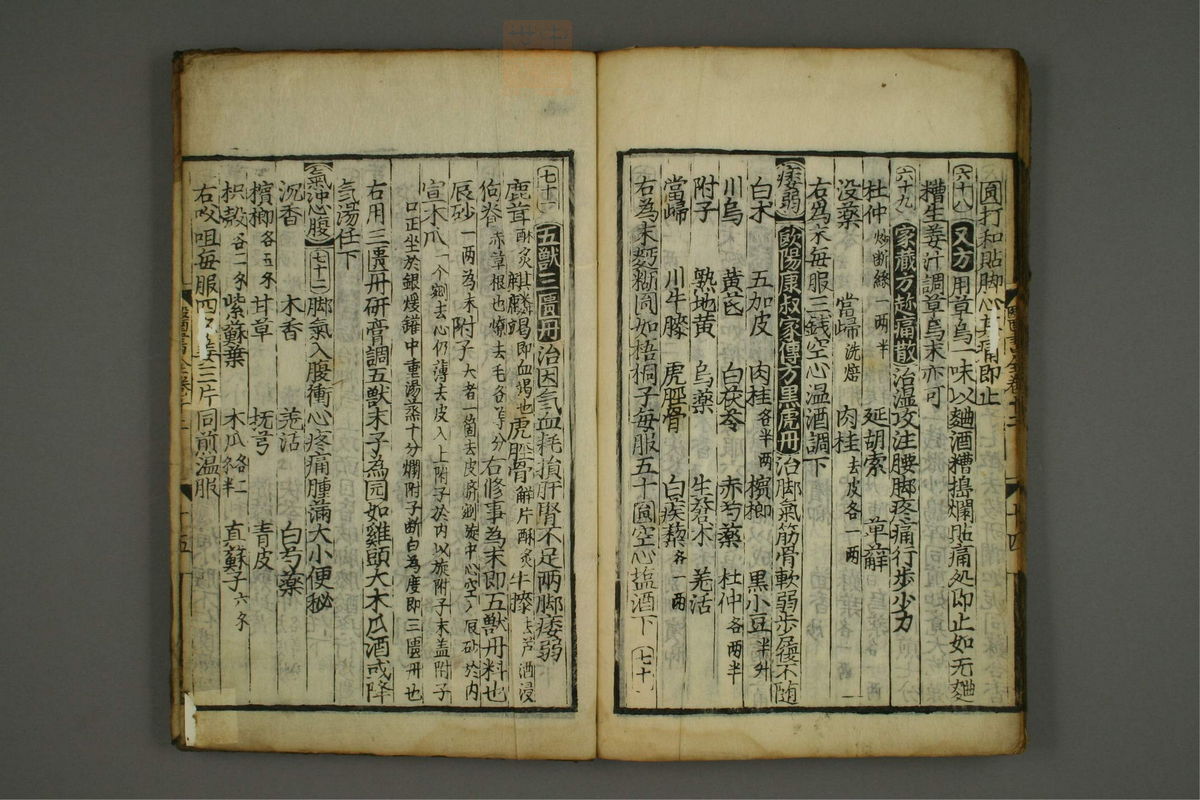 圎打和貼脚心其痛即止
六十八 又方 用草乌一味以麯酒糟搗爛貼痛処即止如无麯
糟生姜汁調草乌末亦可
六十九 家藏方趂痛散 治温攻注腰脚疼痛行歩少力
杜仲 炒断絲一两半 延胡索 萆薢
没藥 當歸洗焙 肉桂去皮各一两
右為末每服三銭空心温酒調下
痿弱 歐陽康叔家傳方黒虎丹 治脚氣筋骨軟弱歩履不随
白术 五加皮 肉桂各半两 檳榔 黒小豆半升
川乌 黄芪 白茯苓 赤芍藥 杜仲各两半
附子 熟地黄 乌藥 生蒼术 羌活
當歸 川牛膝 虎脛骨 白蒺藜各一两
右為末麪糊同如梧桐子每服五十圎空心塩酒下 七十
七十一 五獸三匱丹 治因氣血耗損肝腎不足两脚痿弱
鹿茸酥炙 麒麟竭即血竭也 虎脛骨解片酥炙 牛膝去芦酒浸
狗脊赤草根也燎去毛各等分 右修事為末即五獸丹料也
辰砂一两為末 附子大者一箇去皮臍剜旋中心空入辰砂於内
宣木瓜一个剜去心仍薄去皮入上附子於内以旋附子末盖附子
口正坐於銀煖鑵中重湯蒸十分爛附子断白為度即三匱丹也
右用三匱丹研膏調五獸末子為园如雞頭大木瓜酒或降
氣湯任下
氣冲心腹 七十二 脚氣入腹衝心疼痛腫滿大小便秘
沉香 木香 羌活 白芍藥
檳榔各五㒰 甘草 抚芎 青皮
枳殻各二㒰 紫蘇葉 木瓜各二㒰半 真蘇子六㒰
右㕮咀每服四 姜三片同煎温服